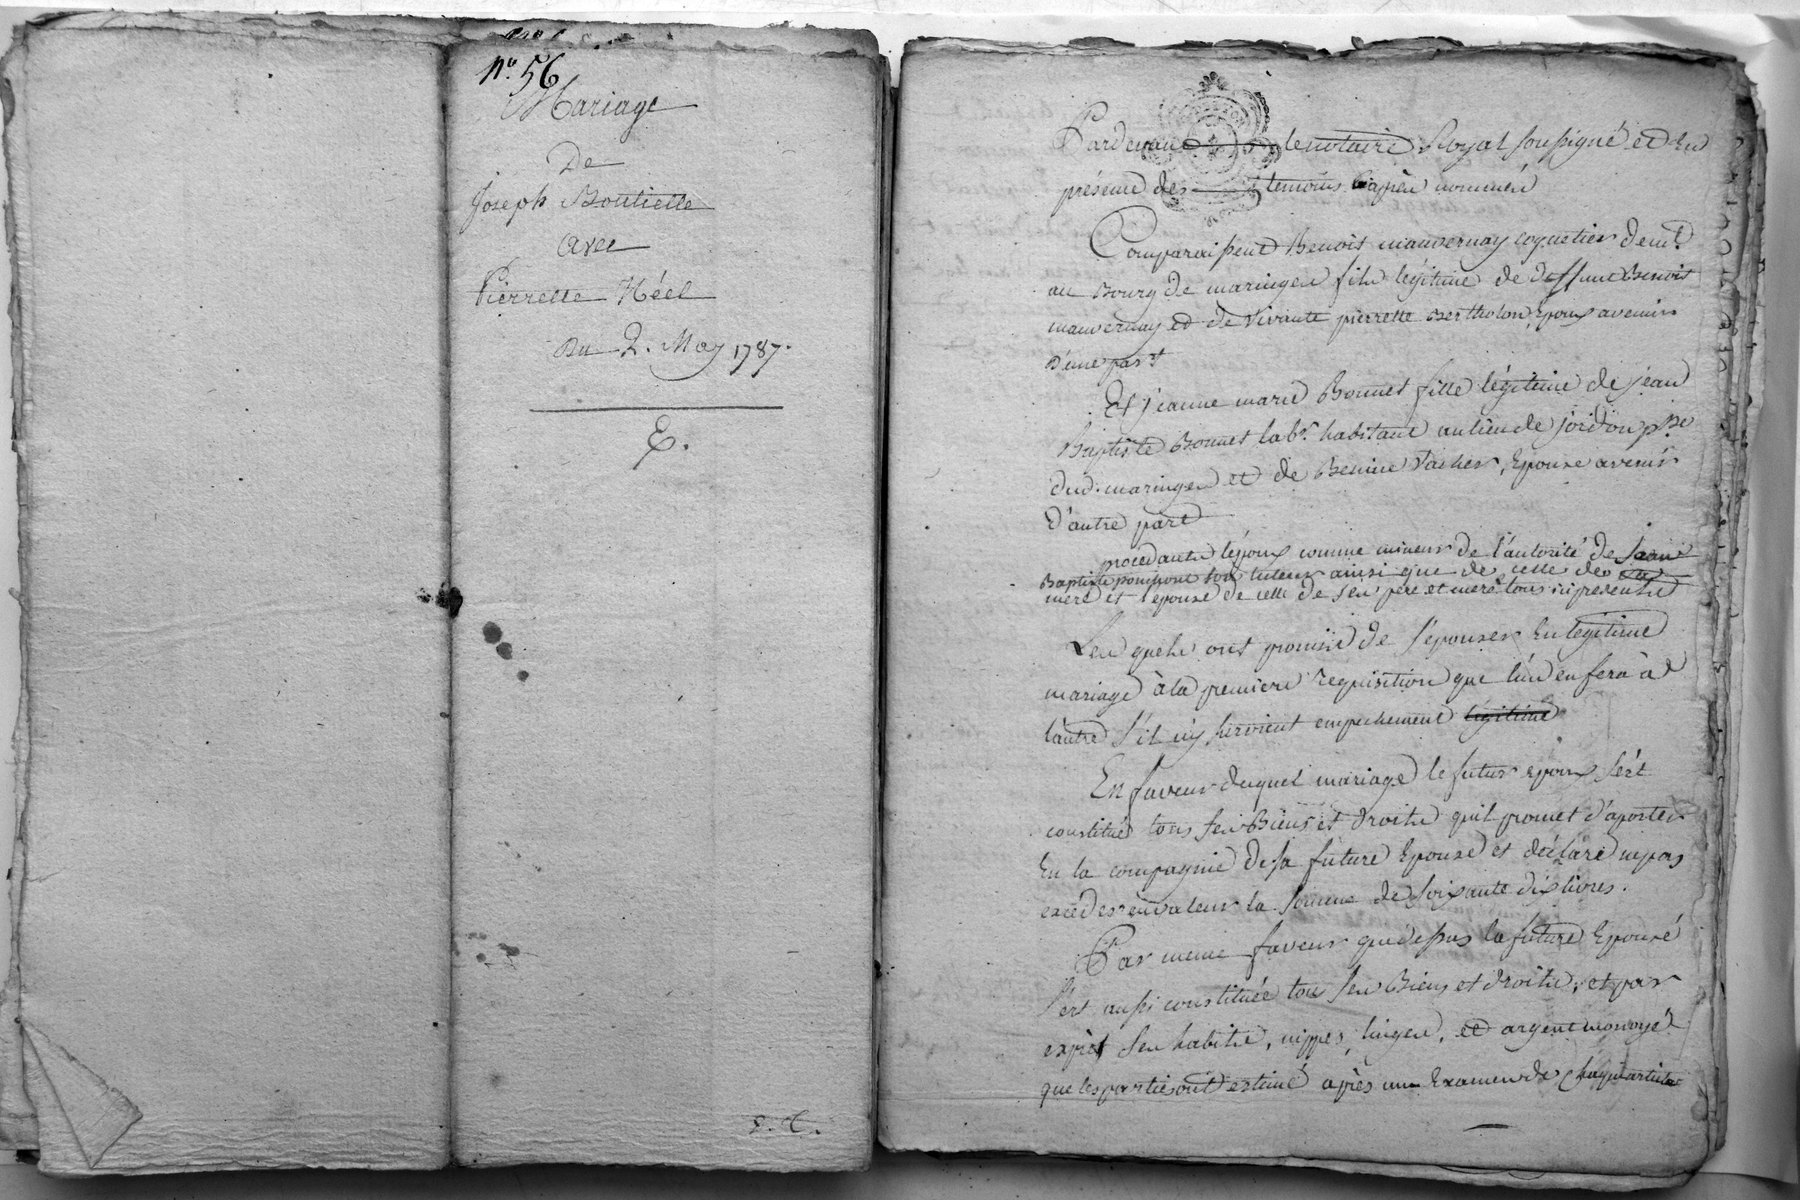 n.° 56
Mariage
De
Joseph Boutielle
avec
Pierrette Néel
Du 2. May 1787.
E.
Pardevant le notaire Royal soussigné et En
présence des temoins Cy après nommés
Comparaissent Benoit mauvernay coquetier demt.
au Bourg de maringes fils légitime de deffunt Benoit
mauvernay et de vivante pierrette Bertholon, Epoux avenir
D'une part
Et jeanne marie Bonnet fille légitime de jean
Baptiste Bonnet labr. habitant au lieu de joidon psse
dud. maringes et de Benine Vacher, Epouse avenir
D'autre part
procédants l'époux comme mineur de l'autorité de jean
Baptiste son tuteur ainsi que de celle de sa
mere et l'épouse de celle de ses père et mere tous ici présents
Les quels ont promis de s'épouser En légitime
mariage à la premiere requisition que l'un en fera à
l'autre s'il n'y survient empechement légitime
En faveur duquel mariage le futur époux s'ést
constitué tous ses Biens et droits qu'il promet d'aporter
En la compagnie de sa future Epouse et déclare ne pas
exceder en valeur la somme de soixante dix livres.
Par meme faveur que dessus la future Epouse
s'est aussi constituée tous ses Biens et droits, et par
exprès ses habits, nippes, linges, et argent monoyé
que les parties ont estimé après un Examen de chaque article